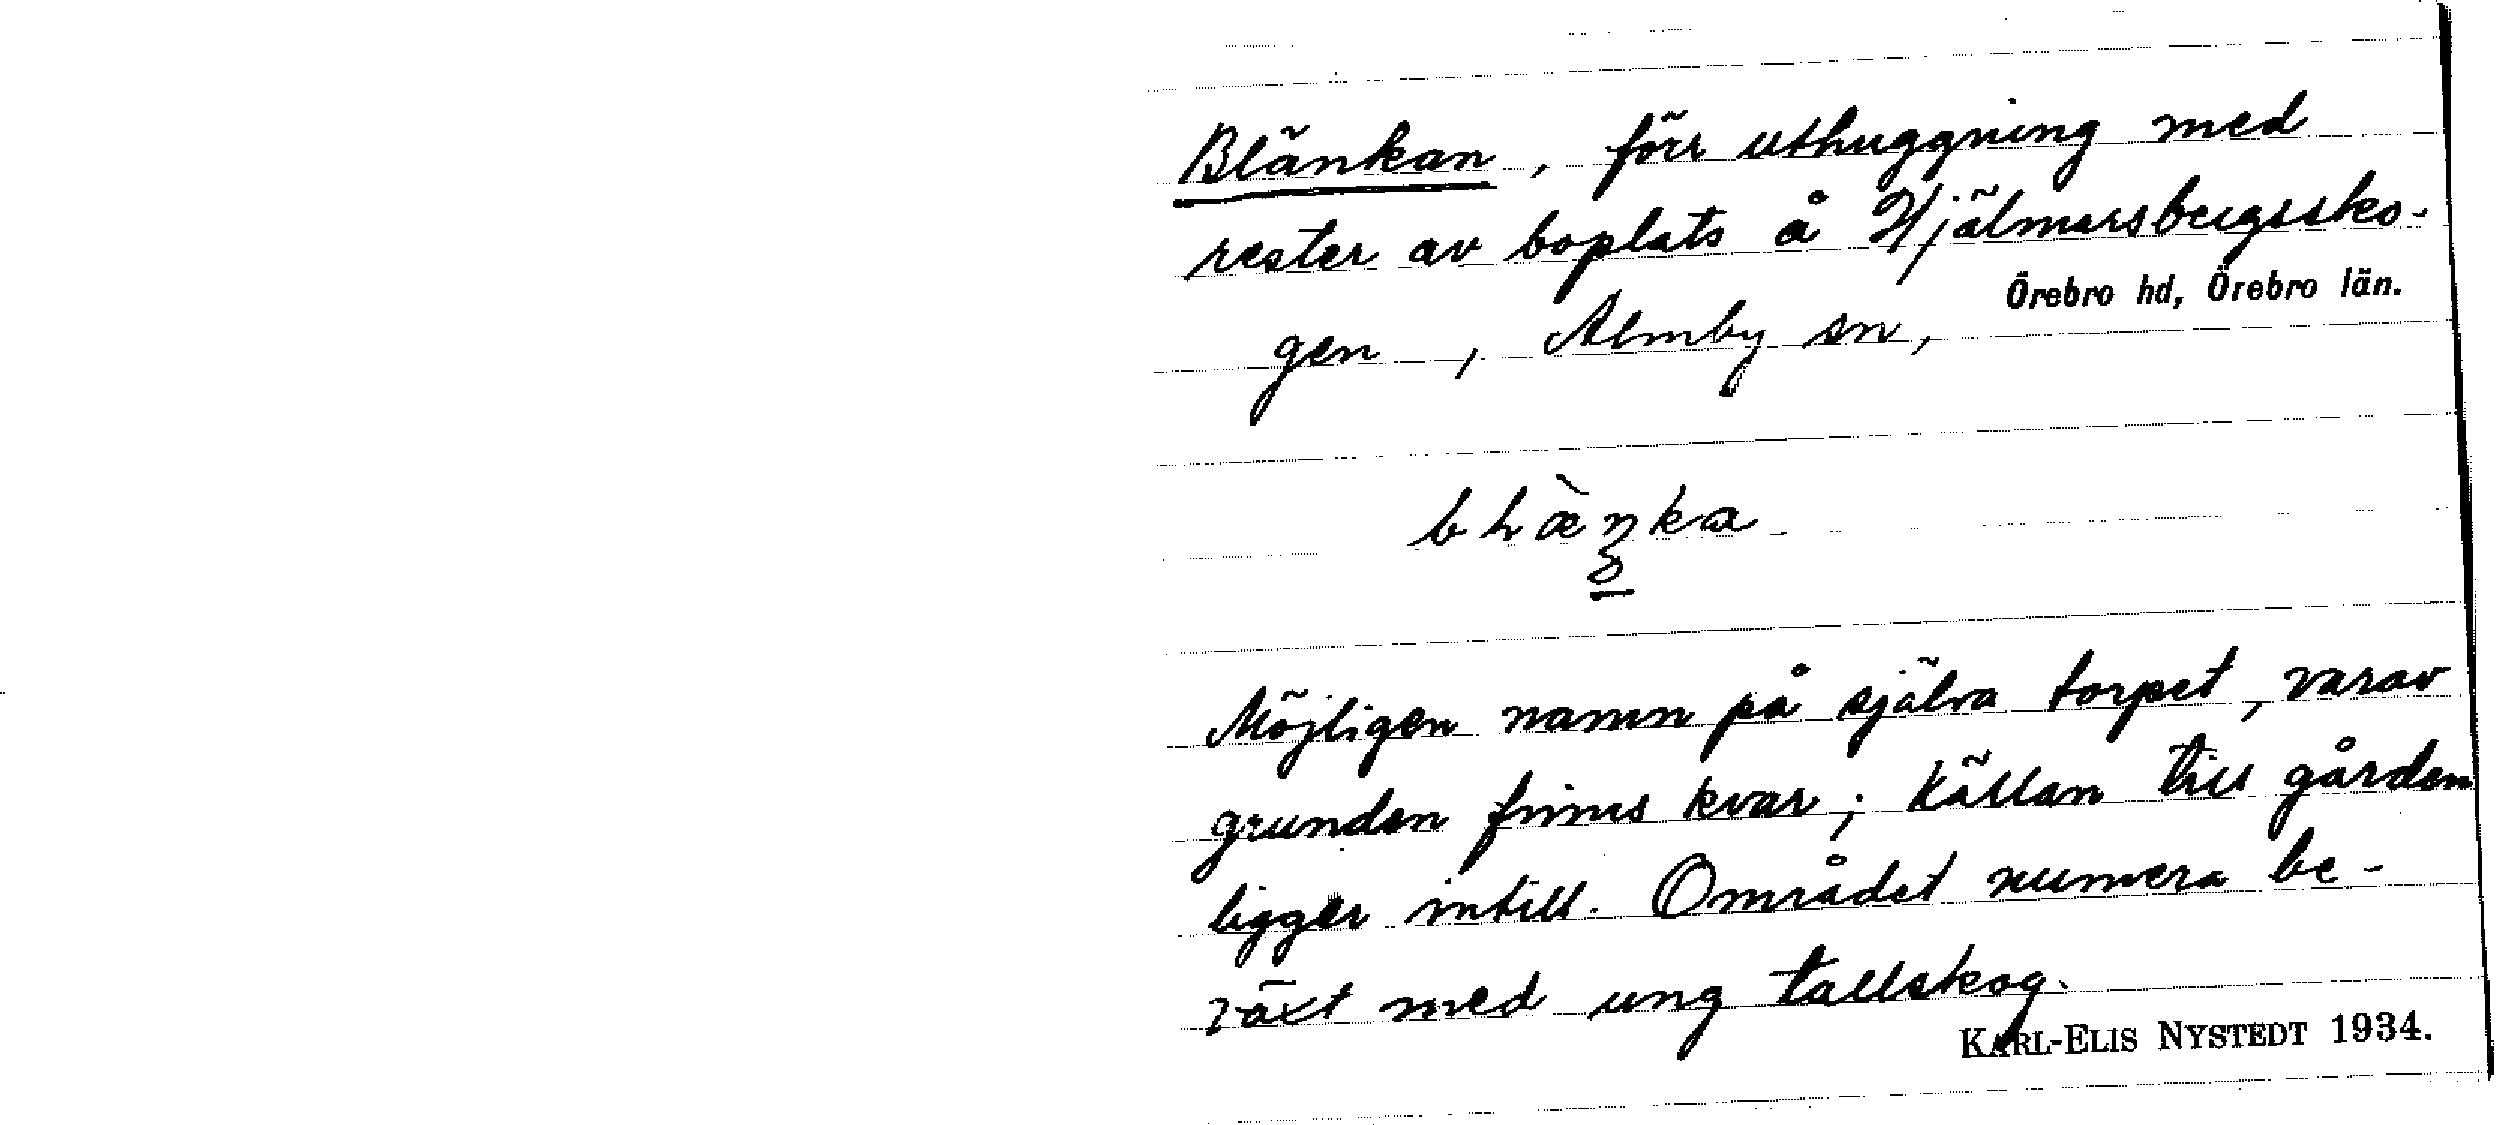 Blänkan, förr uthuggning med
rester av boplats å Hjälmarsbergssko-
gen, Almby sn, Örebro hd, Örebro län.
Möjligen namn på själva torpet, varav
grunden finns kvar; Källan till gården
ligger intill. Området numera be-
växt med ung tallskog.
KARL-ELIS NYSTEDT 1934.